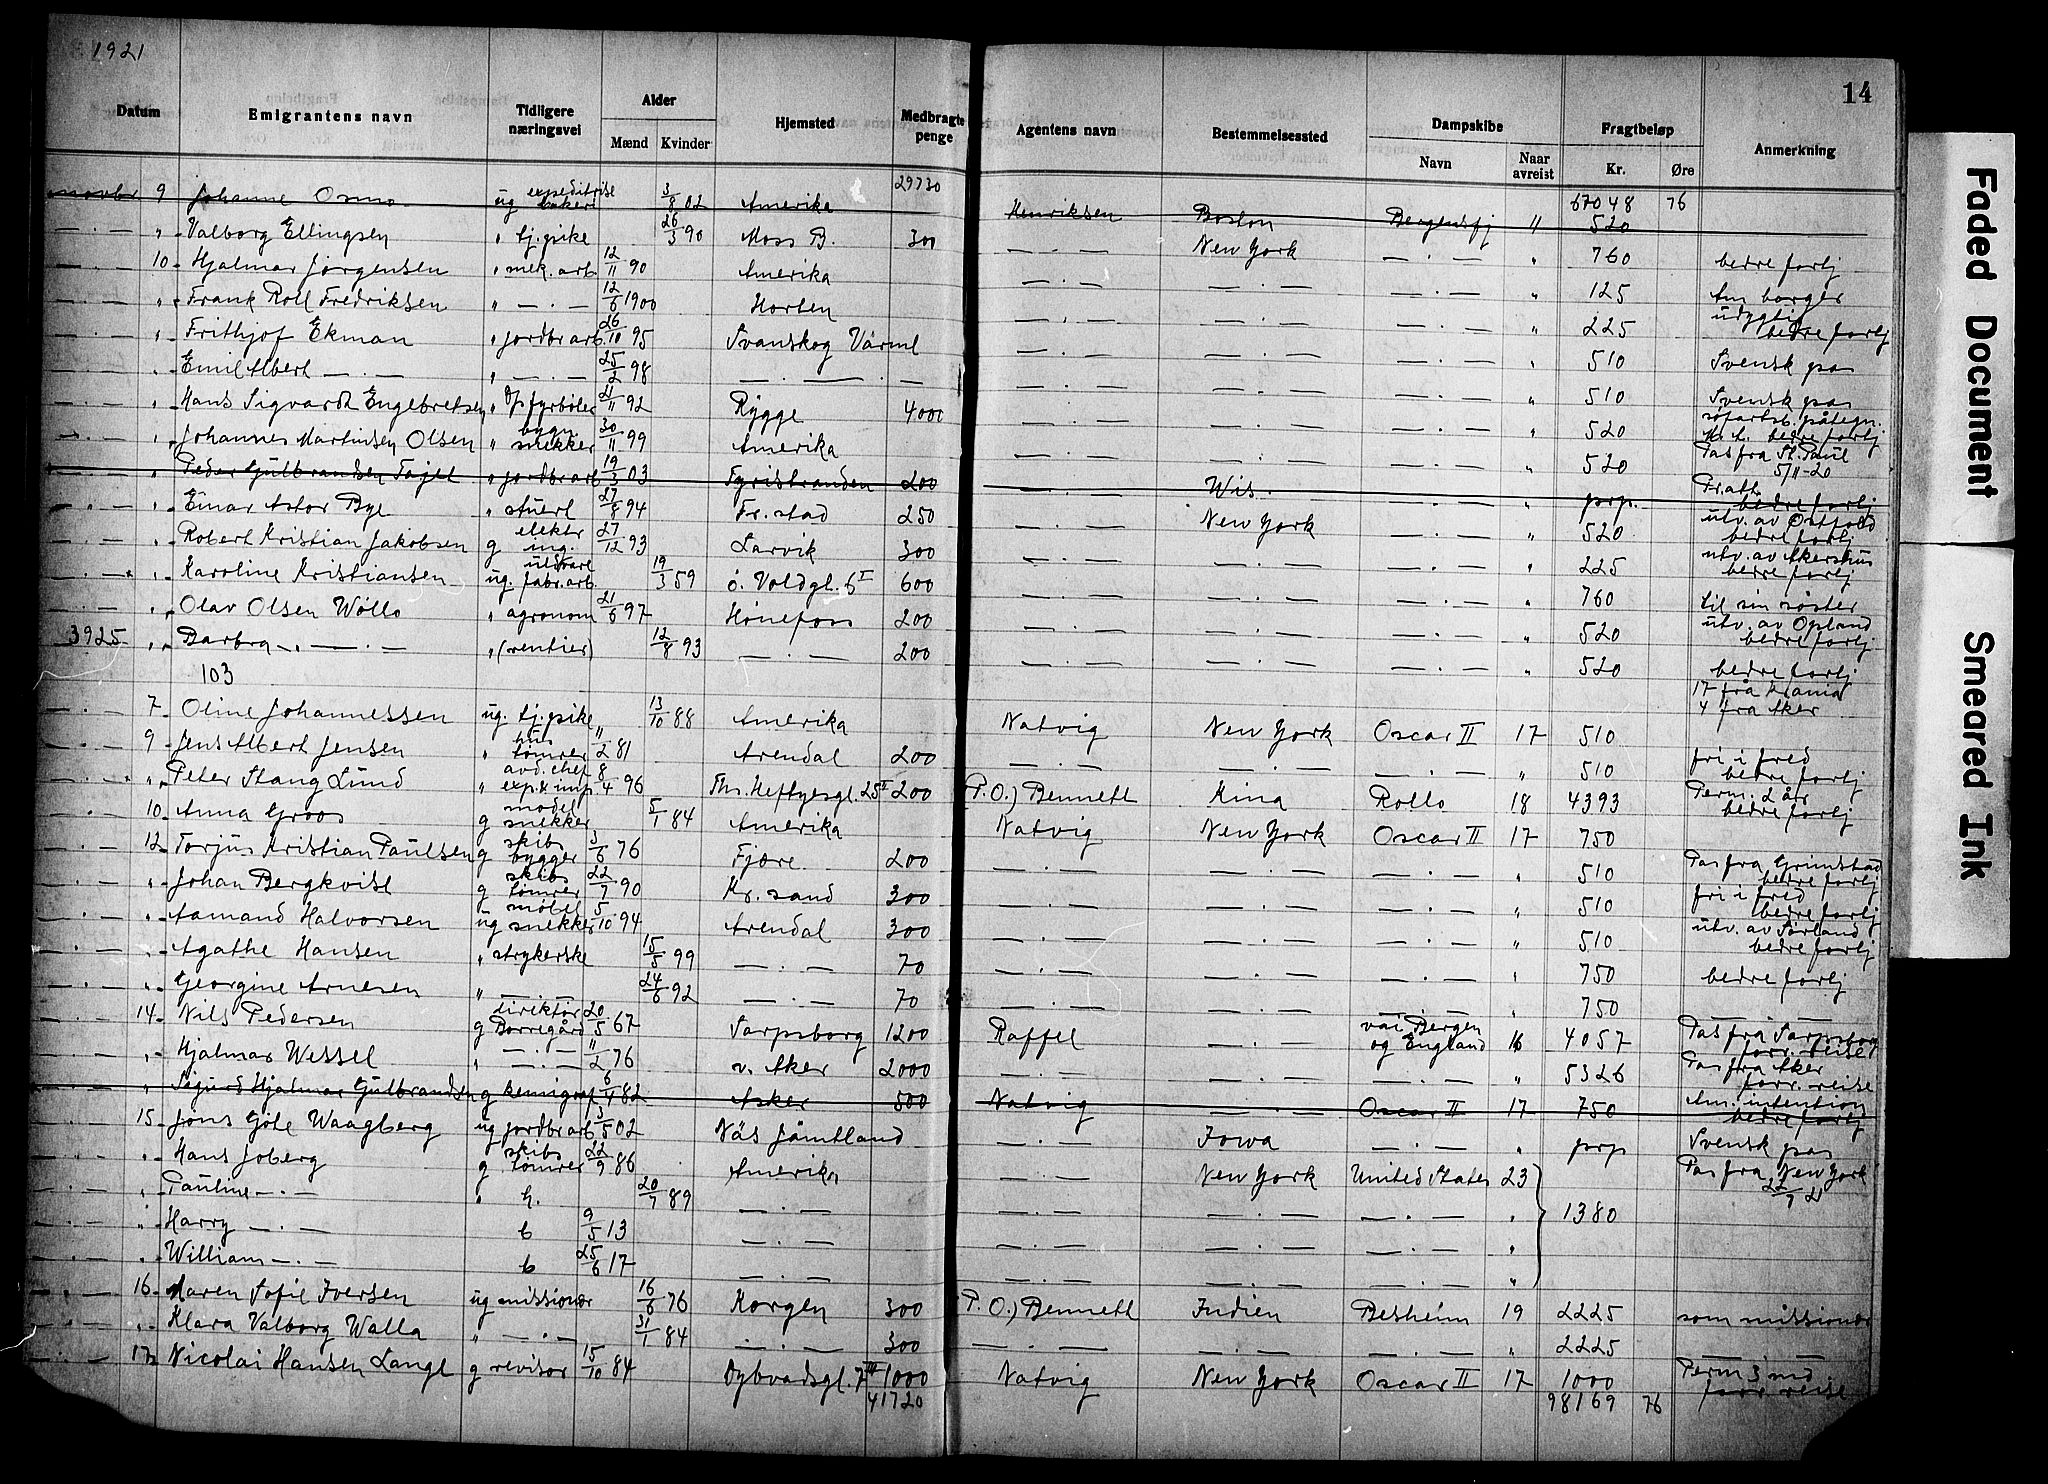 1921
14
Datum Emigrantens navn Tidligere næringsvei Alder Mænd Kvinder Hjemsted Medbragte penge Agentens navn Bestemmelsessted Dampskibe Navn Naar avreist Fragtbeløp Kr. Øre Anmerkning
29730 67048 76
novbr 9 Johanne Osmo ug expeditrise bakeri 3/8 02 Amerika Henriksen Boston Bergensfj " 520
— . — " Valborg Ellingsen " tj. pike 26/3 90 Moss B. 300 — . — New York — . — " 760 bedre forlj
— . — 10 Hjalmar Jørgensen " mek. arb. 12/11 90 Amerika — . — — . — — . — " 125 Am borger
— . — " Frank Roll Fredriksen " — . — 12/6 1900 Horten — . — — . — — . — " 225 udygtig bedre forlj
— . — " Frithjof Ekman " jordbr arb. 26/10 95 Svanskog Värml — . — — . — — . — " 510 Svensk pas
— . — " Emil Albert — . — " — . — 25/2 98 — . — — . — — . — — . — — . — " 510 Svensk pas
— . — " Hans Sigvardt Engebretsen " fyrbøter 21/11 92 Rygge 4000 — . — — . — — . — " 520 søfartsb. påtegn. bedre forlj
— . — " Johannes Martinsen Olsen " bygn. snekker 30/11 99 Amerika — . — — . — — . — " 520 Pas fra St. Paul 5/11-20
— . — " Peder Gulbrandsen Fajet " jordbr arb 19/3 03 Fyristranden 200 — . — Wis. — . — " prp. Fr. att. bedre forlj
— . — " Einar Astor Bye " stuert 27/8 94 Fr. stad 250 — . — New York — . — " 520 utv. av Østfold bedre forlj
— . — " Robert Kristian Jakobsen g elektr ing. 27/12 93 Larvik 300 — . — — . — — . — " 225 utv. av Akershus bedre forlj
— . — " Karoline Kristiansen ug. uldvare fabr. arb. 19/3 59 ö. Voldgt. 6 I 600 — . — — . — — . — " 760 til sin søster
— . — " Olav Olsen Wøllo " agronom 21/6 97 Hönefoss 200 — . — — . — — . — " 520 utv. av Opland bedre forlj
3925 " Barbra — . — " (rentier) 12/8 93 — . — 200 — . — — . — — . — " 520 bedre forlj
103 17 fra Krania
4 fra Aker
— . — 7 Oline Johannessen ug. tj. pike 13/10 88 Amerika Natvig New York Oscar II 17 510
— . — 9 Jens Albert Jensen " hus tømrer 11/2 81 Arendal 200 — . — — . — — . — " 510 fri i fred bedre forlj
— . — " Peter Stang Lund " avd. chef exp. & imp. 8/4 96 Th. Heftyesgt. 25 I 200 P. O.) Bennett Kina Rollo 18 4393 Perm. 2 år bedre forlj
— . — 10 Anna Groos g model snekker 5/1 84 Amerika Natvig New York Oscar II 17 750
— . — 12 Torjus Kristian Paulsen g skibs bygger 3/6 76 Fjære 200 — . — — . — — . — " 510 Pas fra Grimstad bedre forlj
— . — " Johan Bergkvist g skibs tømrer 22/7 90 Kr. sand 300 — . — — . — — . — " 510 fri i fred bedre forlj
— . — " Aamand Halvorsen ug møbel snekker 5/10 94 Arendal 300 — . — — . — — . — " 510 utv. av Sørland bedre forlj
— . — " Agathe Hansen " strykerske 15/5 99 — . — 70 — . — — . — — . — " 750 bedre forlj
— . — " Georgine Arnesen " — . — 24/6 92 — . — 70 — . — — . — — . — " 750 — . —
— . — 14 Nils Pedersen g direktør Borregård 20/5 67 Sarpsborg 1200 Raffel — . — vai Bergen og England 16 4057 Pas fra Sarpsborg forr. reise
— . — " Hjalmar Wessel " — . — 11/2 76 v. Aker 2000 — . — — . — — . — " 5326 Pas fra Aker forr. reise
— . — " Sigurd Hjalmar Gulbrandsen g kemigraf 6/4 82 Asker 500 Natvig — . — Oscar II 17 750 Am. intention bedre forlj
— . — 15 Jöns Göte Waagberg ug jordbr arb 3/5 02 Näs Jämtland — . — Jowa — . — " prp Svensk pas
— . — " Hans Joberg g skibs tømrer 22/9 86 Amerika — . — New York United States 23 Pas fra New York 22/9 21
— . — " Pauline — . — " h. 20/7 89 — . — — . — — . — — . — " 1380
— . — " Harry — . — b 9/5 13 — . — — . — — . — — . — "
— . — " William — . — b 25/6 17 — . — — . — — . — — . — "
— . — 16 Maren Sofie Iversen ug missionær 16/6 76 Korgen 300 P. O.) Bennett Indien Besheim 19 2225 som missionær
— . — " Klara Valborg Walla " — . — 31/1 84 — . — 300 — . — — . — — . — " 2225 — . —
— . — 17 Nicolai Hansen Lange g revisor 15/10 84 Dybvadsgt. 7 III 1000 Natvig New York Oscar II 17 1000 Perm 3 md forr. reise
41720 98169 76
Faded Document
Smeared Ink